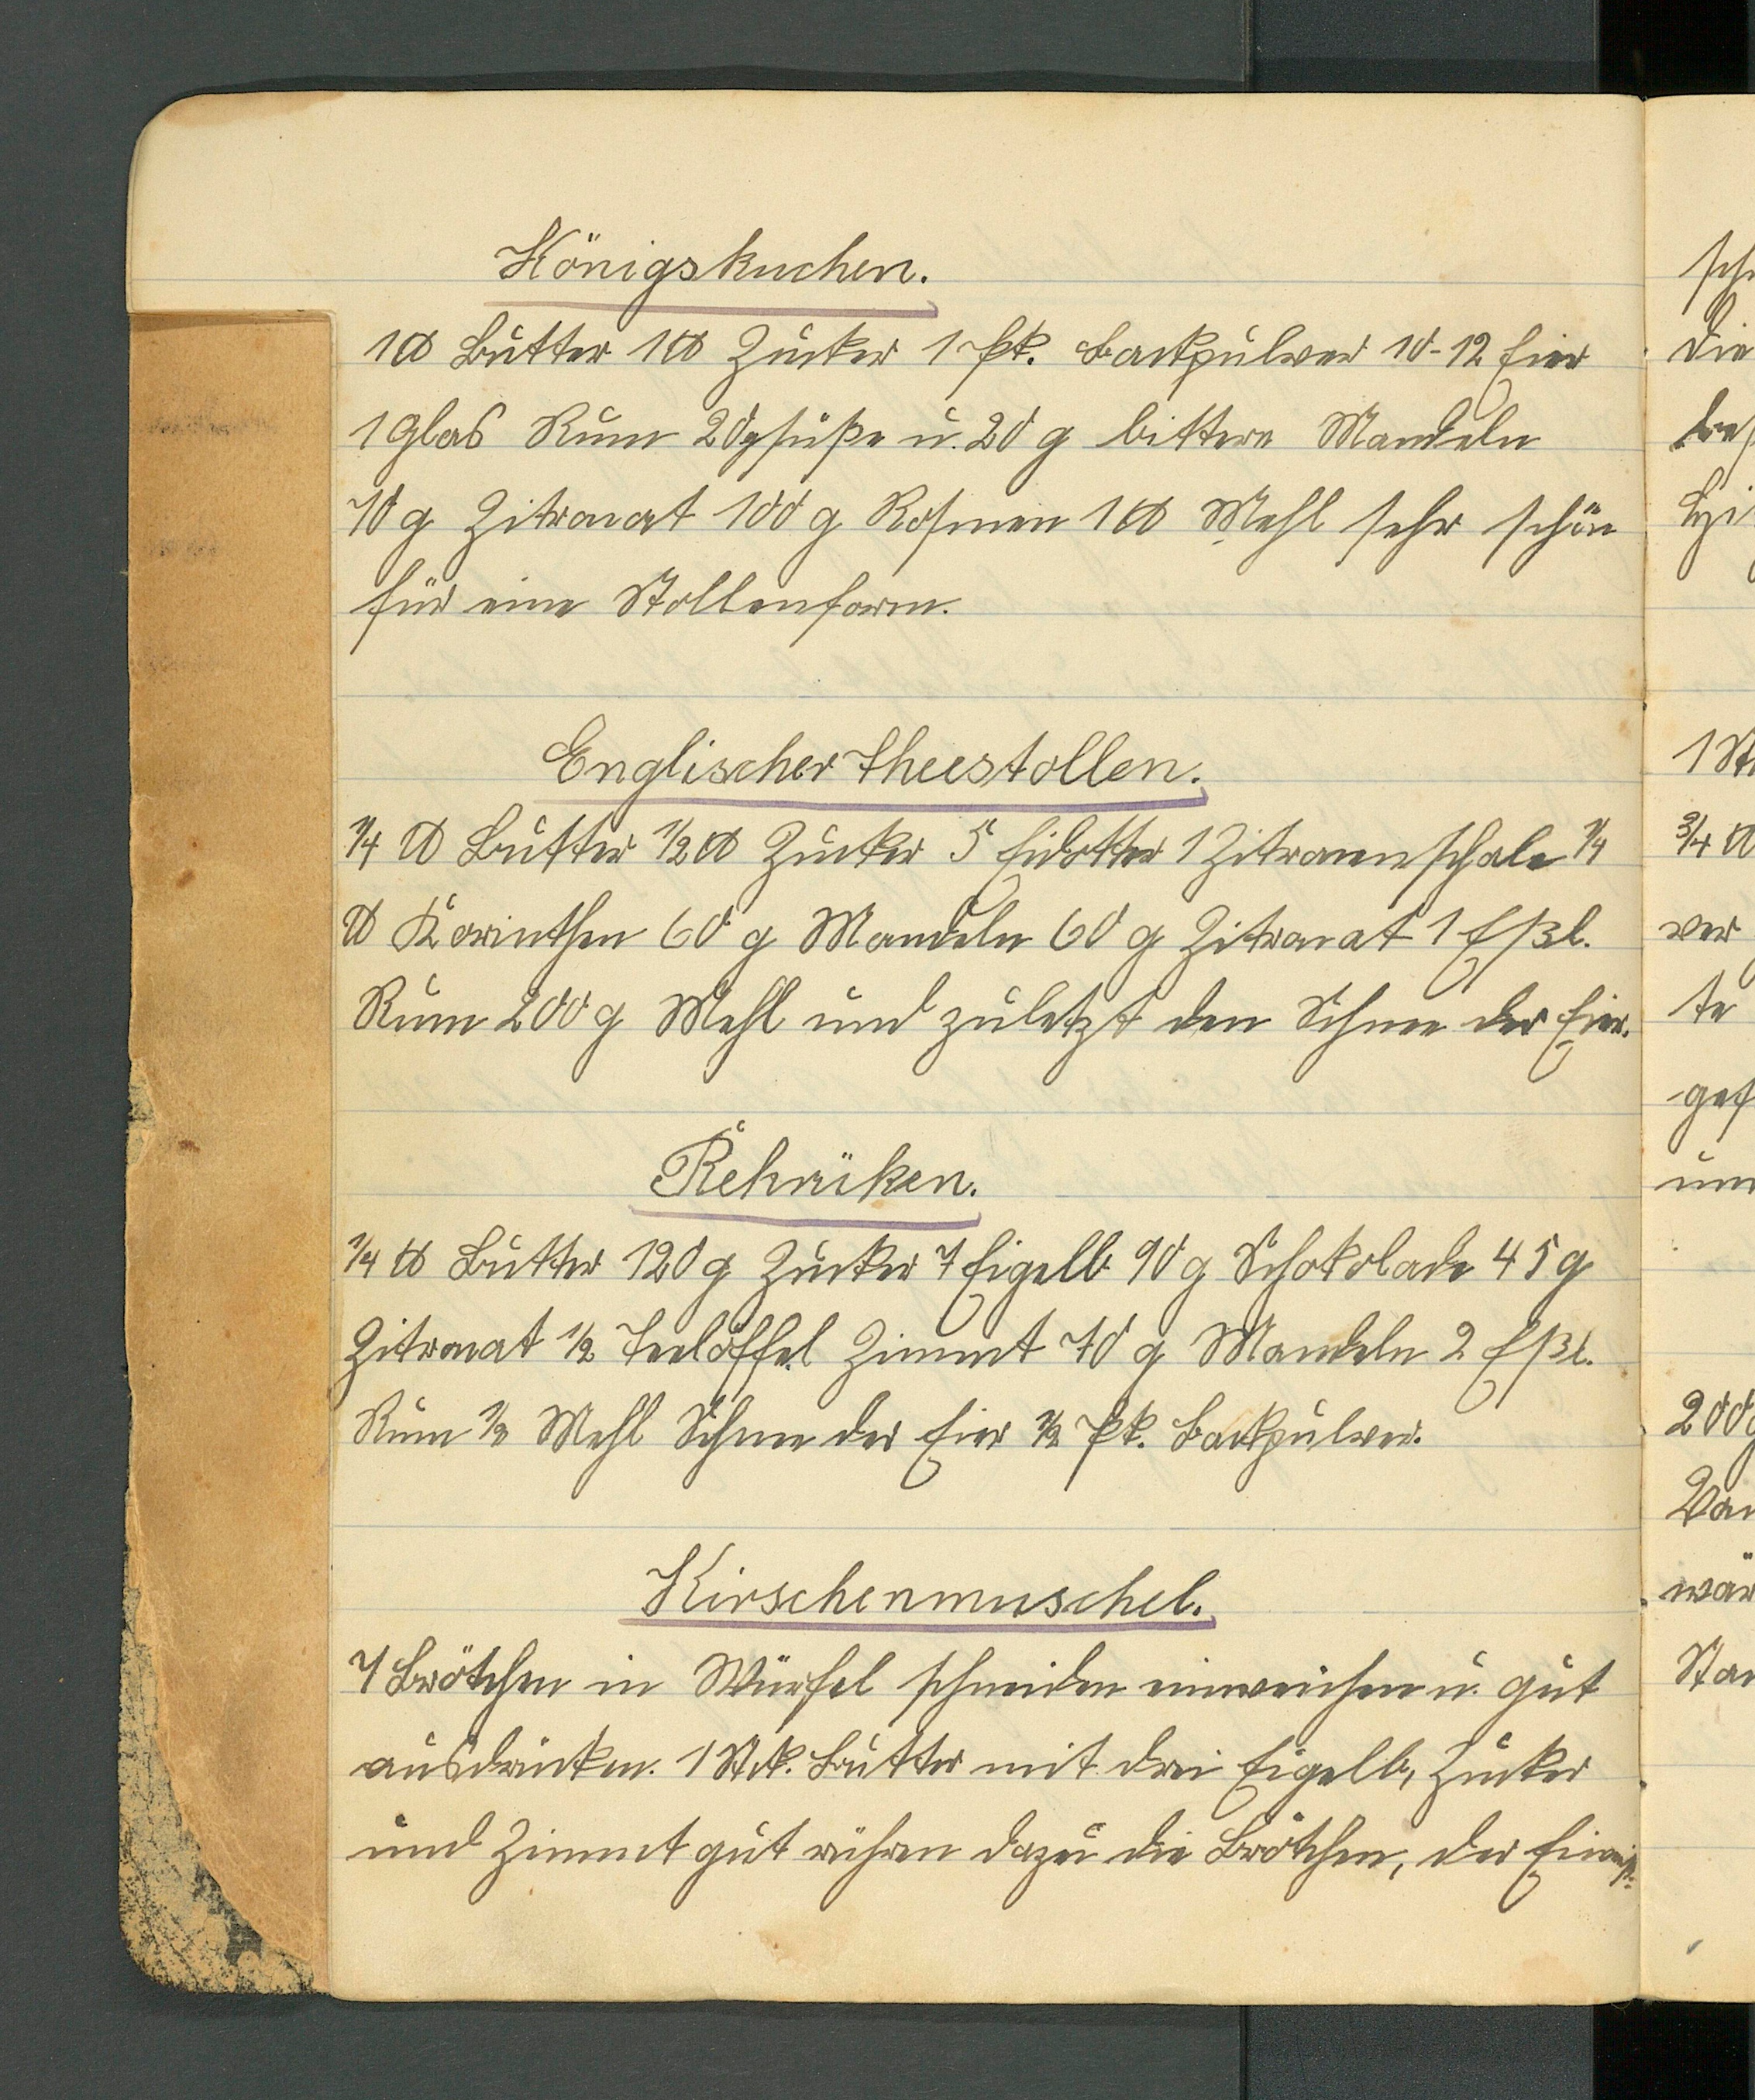 Königskuchen.
1 ℔ Butter 1 ℔ Zucker 1 Pk. Backpulver 10-12 Eier
1 Glas Rum 20 g süße u. 20 g bittere Mandeln
70 g Zitronat 100 g Rosinen 1 ℔ Mehl sehr schön
für eine Stollenform.
Englischer Theestollen.
1/4 ℔ Butter 1/2 ℔ Zucker 5 Eidotter 1 Zitronenschale 1/4
℔ Korinthen 60 g Mandeln 60 g Zitronat 1 Eßl.
Rum 200 g Mehl und zuletzt den Schnee der Eier.
Rehrüken.
1/4 ℔ Butter 120 g Zucker 7 Eigelb 90 g Schokolade 45 g
Zitronat 1/2 Teelöffel Zimmt 70 g Mandeln 2 Eßl.
Rum 1/2 Mehl Schnee der Eier 1/2 Pk. Backpulver.
Kirschenmuschel.
7 Brötchen in Würfel schneiden einweichen u. gut
ausdrücken. 1 Stck. Butter mit drei Eigelb, Zucker
und Zimmt gut rühren dazu die Brötchen, der Eiweiß-
die
1 St
3/4 ℔
ver
te
200